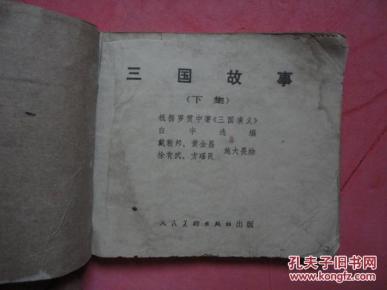 三国故事
(下集)
根据罗贯中著《三国演义》
白宇选编
戴敦邦、黄全昌
徐有武、方瑶民 施大畏绘
人民美术出版社出版
孔夫子旧书网